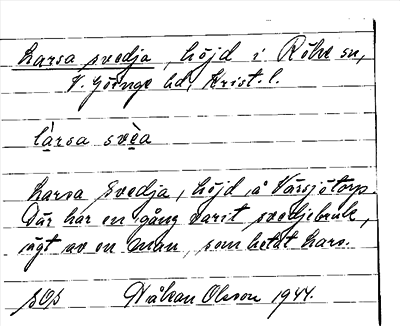 Larsa svedja, höjd i Röke sn,
V. Göinge hd, Krist. l.
làrsa svèa
Larsa svedja, höjd å Vårsjötorp.
Där har en gång varit svedjebruk,
ägt av en man, som hetat Lars.
Håkan Olsson 1944.